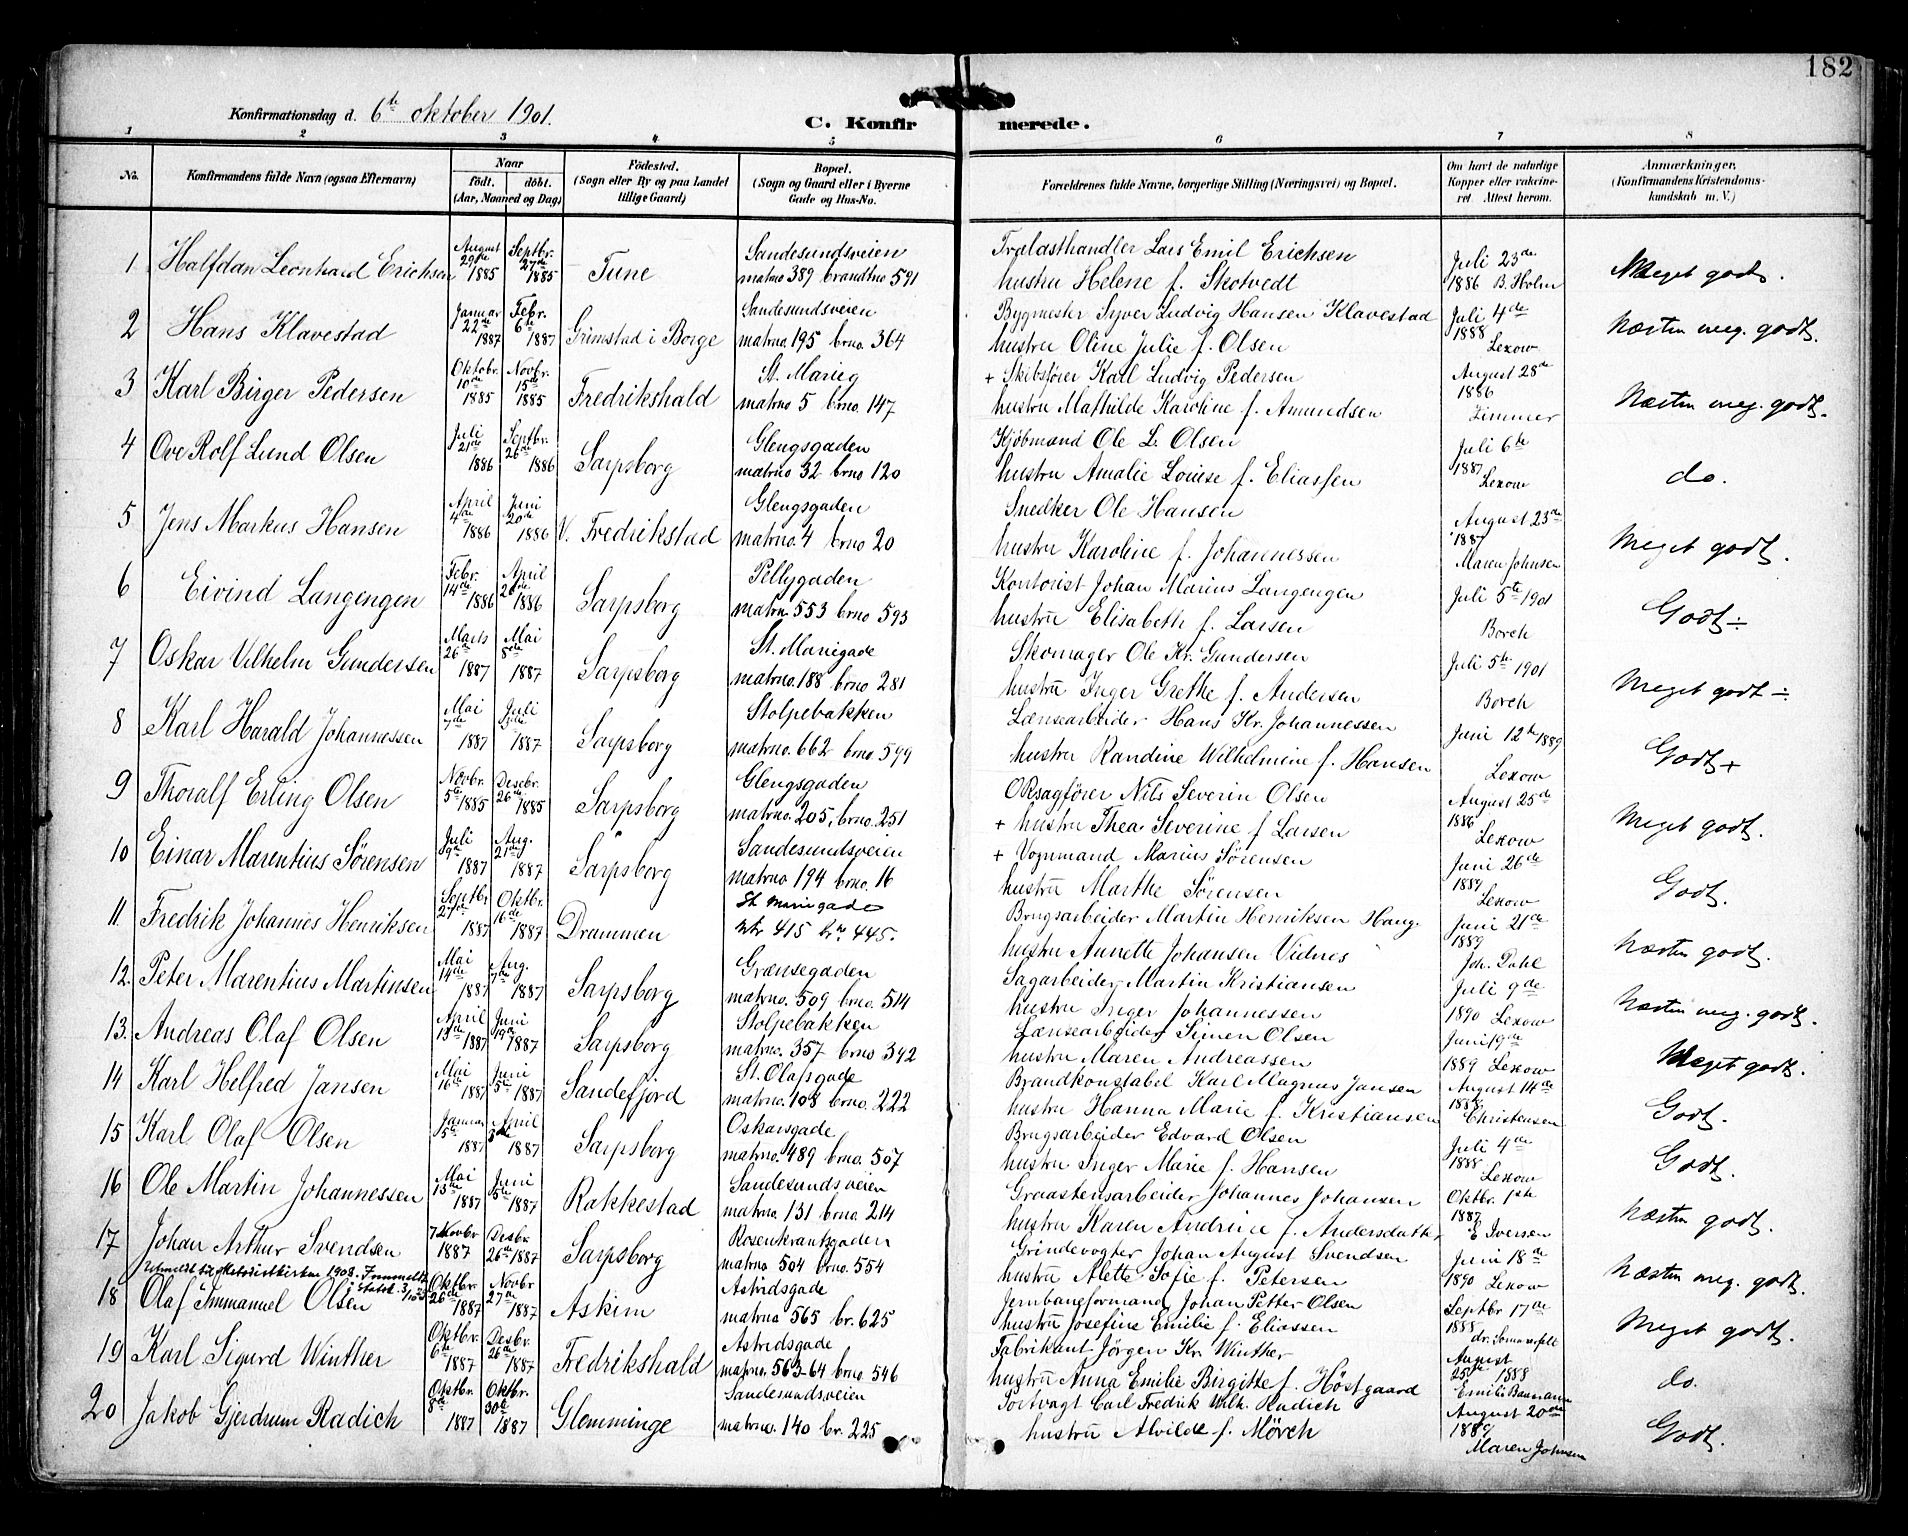 182
Konfirmationsdag d. 6te oktober 1901.
C. Konfirmerede.
1 2 3 4 5 6 7 8
No.
Konfirmandens fulde Navn (ogsaa Efternavn)
Naar
födt. döbt.
(Aar, Maaned og Dag)
Födested.
(Sogn eller By og paa Landet
tillige Gaard)
Bopæl.
(Sogn og Gaard eller i Byerne
Gade og Hus-No.
Forældrenes fulde Navne, borgerlige Stilling (Næringsvei) og Bopæl.
Om havt de naturlige
Kopper eller vakcine-
ret Attest herom.
Anmærkninger.
(Konfirmandens Kristendoms-
kundskab m. V.)
1 Halfdan Leonhard Erichsen August 29de 1885 Septbr. 27de 1885 Tune Sandesundsveien
matrno 389 brandtno 591
Trælasthandler Lars Emil Erichsen
hustru Helene f. Skotvedt
Juli 23de
1886 B. Holm
Meget godt.
2 Hans Klavestad Januar 22de 1887 Febr. 6te 1887 Grimstad i Borge Sandesundsveien
matrno. 195 brno. 364
Bygmester Syver Ludvig Hansen Klavestad
hustru Oline Julie f. Olsen
Juli 4de
1888 Lexow
Næsten meg. godt.
3 Karl Birger Pedersen Oktobr. 10de 1885 Novbr. 15de 1885 Fredrikshald St. Marieg
matrno 5 brno. 147
+ Skibsfører Karl Ludvig Pedersen
hustru Mathilde Karoline f. Amundsen
August 28de
1886
Zimmer
Næsten meg. godt.
4 Ove Rolf Lund Olsen Juli 21de 1886 Septbr. 26de 1886 Sarpsborg Glengsgaden
matrno 32 brno 120
Kjöbmand Ole L. Olsen
hustru Amalie Louise f. Eliassen
Juli 6te
1887
Lexow
do.
5 Jens Markus Hansen April 4de 1886 Juni 20de 1886 V. Fredrikstad Glengsgaden
matrno. 4 brno 20
Snedker Ole Hansen
hustru Karoline f. Johannessen
August 23de
1887
Maren Johnsen
Meget godt.
6 Eivind Langengen Febr. 14de 1886 April 26de 1886 Sarpsborg Pellygaden
matrn. 553 brno 593
Kontorist Johan Marius Langengen
hustru Elisabeth f. Larsen
Juli 5te 1901
Borch
Godt ÷
7 Oskar Vilhelm Gundersen Marts 26de 1887 Mai 8de 1887 Sarpsborg St. Mariegade
matrno. 188 brno 281
Skomager Ole Kr. Gundersen
hustru Inger Grethe f. Andersen
Juli 5te 1901
Borch
Meget godt ÷
8 Karl Harald Johannessen Mai 7de 1887 Juli 1887 Sarpsborg Stolpebakken
matrno. 662 brno 599
Lænsearbeider Hans Kr. Johannessen
hustru Randine Wilhelmine f. Hansen
Juni 12te 1889
Lexow
Godt +
9 Thoralf Erling Olsen Novbr. 5te 1885 Desebr. 26de 1885 Sarpsborg Glengsgaden
matrno. 205, brno. 251
ORsagfører Nils Severin Olsen
+ hustru Thea Severine f Larsen
August 25de
1886
Lexow
Meget godt.
10 Einar Marentius Sörensen Juli 9de 1887 Aug. 21de 1887 Sarpsborg Sandesundsveien
matrno 194 brno. 16
+ Vognmand Marius Sörensen
hustru Marthe Sörensen
Juni 26de
1889
Lexow
Godt.
11 Fredrik Johannes Henriksen Septbr. 27de 1887 Oktbr. 16de 1887 Drammen St Mariegade
Mtr 415 br. 445.
Brugsarbeider Martin Henriksen Haug.
hustru Annette Johansen Vidnes
Juni 21de
1889
Joh. Dahl
Næsten godt.
12. Peter Marentius Martinsen Mai 14de 1887 Aug. 7de 1887 Sarpsborg Grænsegaden
matrno. 509 brno. 514
Sagarbeider Martin Kristiansen
hustru Inger Johannessen
Juli 9de
1890 Lexow
Næsten meg. godt.
13. Andreas Olaf Olsen April 13de 1887 Juni 19de 1887 Sarpsborg Stolpebakken
matrno. 357 brno 392
Lænsearbeider Simen Olsen
hustru Maren Andreassen
Juni 19de
1889 Lexow
Meget godt.
14 Karl Helfred Jansen Mai 16de 1887 Juni 5te 1887 Sandefjord St. Olafsgade
matrno. 108 brno. 222
Brandkonstabel Karl Magnus Jansen
hustru Hanna Marie f. Kristiansen
August 14de
1888
Christensen
Godt.
15 Karl Olaf Olsen Januar 5te 1887 April 1887 Sarpsborg Oskarsgade
matrno. 489 brno. 507
Brugsarbeider Edvard Olsen
hustru Inger Marie f. Hansen
Juli 4de
1888
Lexow
Godt.
16 Ole Martin Johannessen Mai 13de 1887 Juni 5te 1887 Rakkestad Sandesundsveien
matrno. 131 brno. 214
Graastensarbeider Johannes Johansen
hustru Karen Andrine f. Andersdatter
Oktbr. 1ste
1887
E Iversen
Næsten godt.
17 Johan Arthur Svendsen 7 Novbr 1887 Desbr. 26de 1887 Sarpsborg Rosenkrantsgaden
matrno 504 brno. 554
Grindevogter Johan August Svendsen
hustru Alette Sofie f. Petersen
Juni 18de
1890 Lexow
Næsten meg. godt.
Udmeldt til Metodistkirken 1908. Innmeldt
i Statsk.
18 Olaf Immanuel Olsen Oktbr. 26de 1887 Novbr 27de 1887 Askim Astridsgade
matrno 565 br. 625
Jernbaneformand Johan Petter Olsen
hustru Josefine Emilie f. Eliassen
Septbr 17de
1888
dr. Sommerfelt
Meget godt.
19 Karl Sigurd Winther Oktbr. 6te 1887 Desbr. 26de 1887 Fredrikshald Astridsgade
matrno. 563-64 brno. 546
Fabrikant Jörgen Kr. Winther
hustru Anna Emilie Birgitte f. Höstgaard
August
25de 1888
Emilie Baumann
do.
20 Jakob Gjerdrum Radich Oktbr. 8de 1887 Oktbr. 30de 1887 Glemminge Sandesundsveien
matrno. 140 br. 225
Toltvagt Carl Fredrik Wilh. Radich
hustru Alvilde f. Mörch
August 20de
1889
Maren Johnsen
Godt.